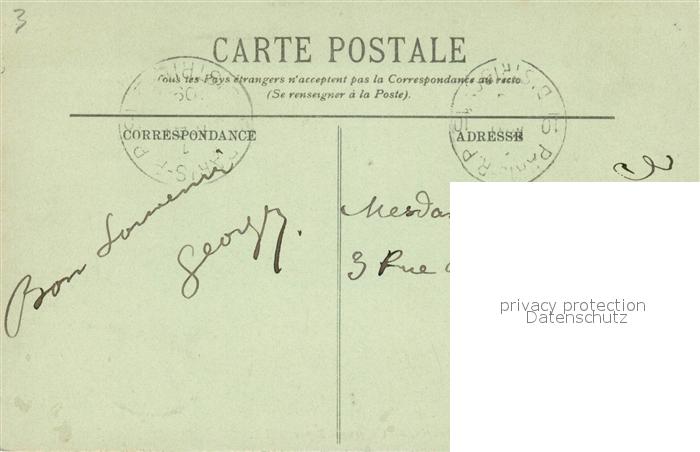 3
CARTE POSTALE
Tous les Pays étrangers n'acceptent pas la Correspondance au recto
(Se renseigner à la Poste).
CORRESPONDANCE
ADRESSE
Bon Souvenir
Mesda
3 Rue
privacy protection
Datenschutz